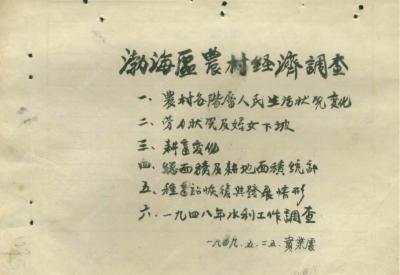 渤海區農村经濟調查
一、農村各階層人民生活狀况变化
二、劳力狀况及婦女下坡
三、耕畜变化
四、總面積及耕地面積統計
五、種畜的恢復與發展情形
六、一九四八年水利工作調查
一九四九.五.二五.實業處